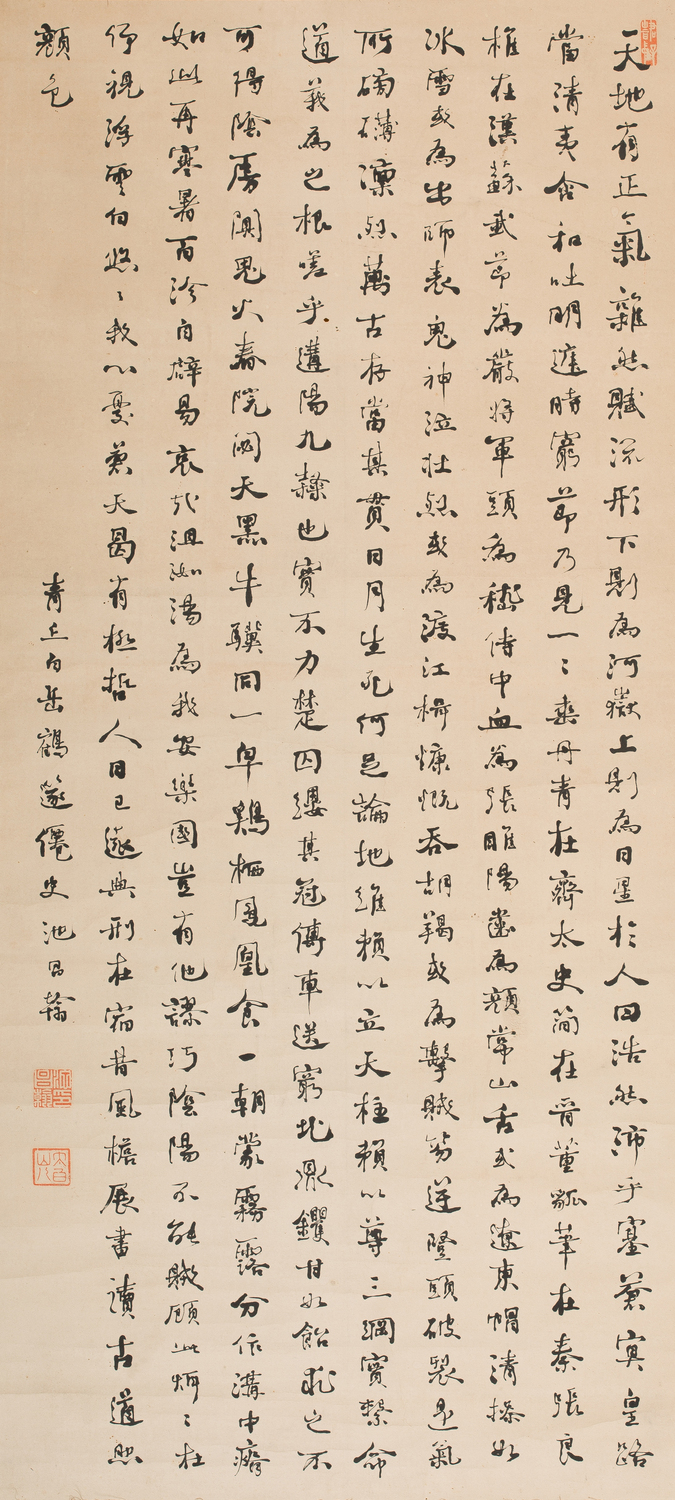 天地有正氣雜然賦流形下則為河嶽上則為日星於人曰浩然沛乎塞蒼冥皇路
當清夷含和吐明廷時窮節乃見一〻垂丹青在齊太史簡在晉董狐筆在秦張良
椎在漢蘇武節為嚴將軍頭為嵇侍中血為張睢陽齒為顏常山舌或為遼東帽清操如
冰雪或為出師表鬼神泣壯烈或為渡江楫慷慨吞胡羯或為擊賊笏逆豎頭破裂是氣
所磅礴凜烈萬古存當其貫日月生死何足論地維賴以立天柱賴以尊三綱實繫命
道義為之根嗟乎遘陽九隸也實不力楚囚纓其冠傳車送窮北鼎鑊甘如飴求之不
可得陰房闃鬼火春院閟天黑牛驥同一皁鷄栖鳳凰食一朝蒙霧露分作溝中瘠
如此再寒暑百沴自辟易哀哉沮洳場為我安樂國豈有他謬巧陰陽不能賊顧此炯〻在
仰視浮雲白悠〻我心憂蒼天曷有極哲人日已遠典刑在宿昔風檐展書讀古道照
顏色
青丘白岳鶴篴僊史池昌翰